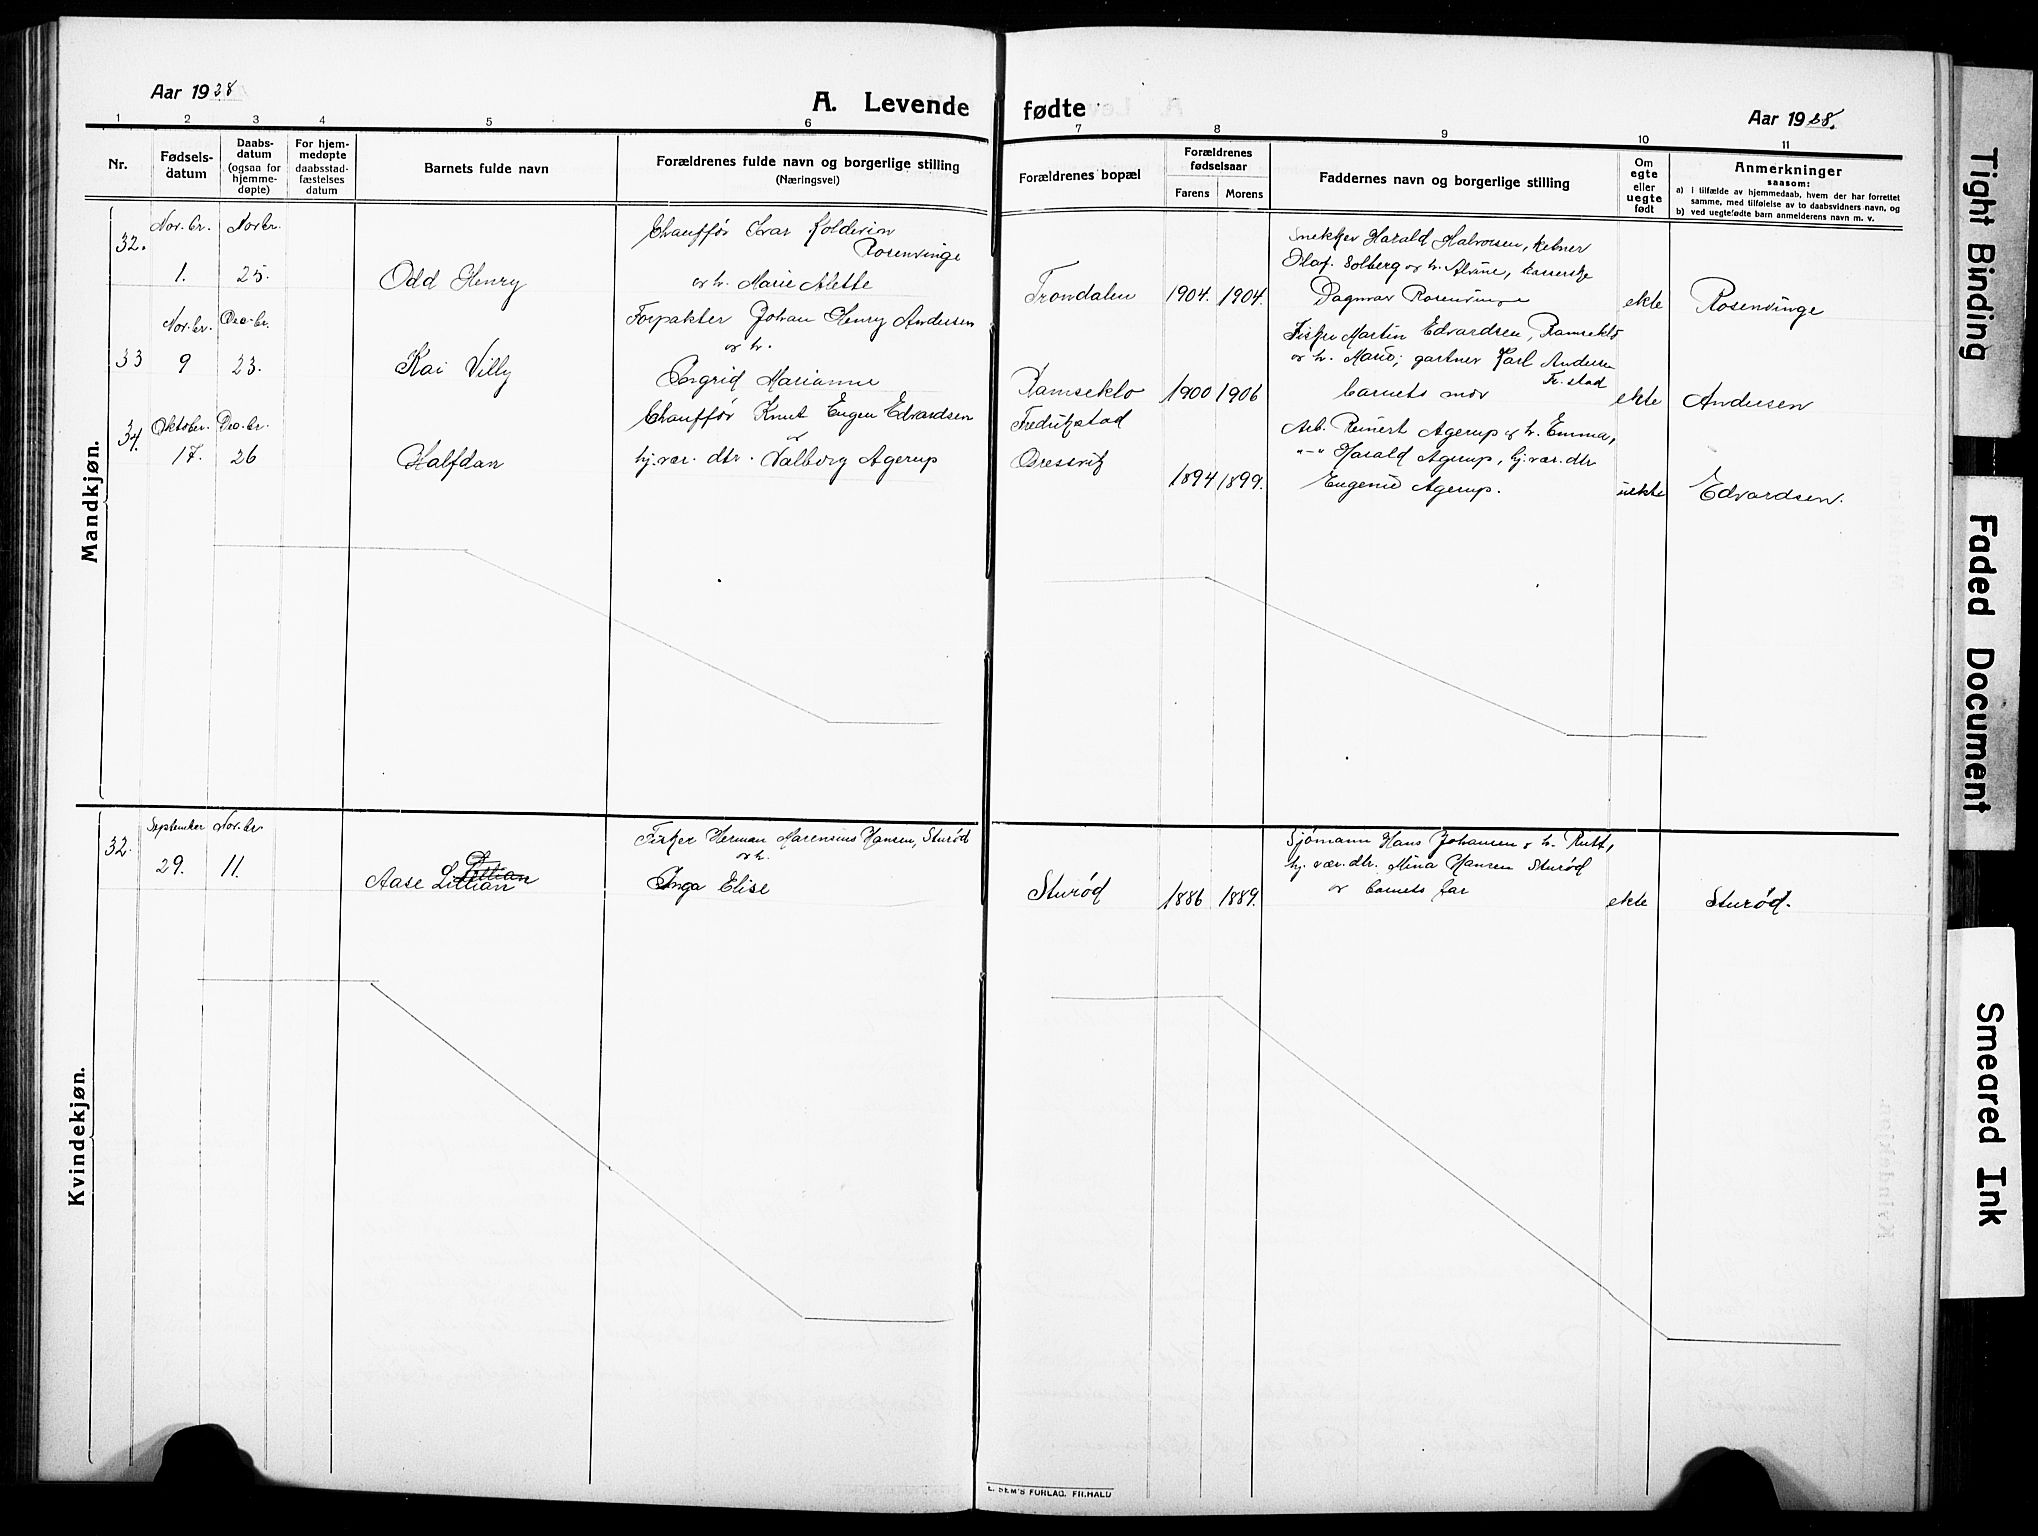 Aar 1928
A. Levende fødte
Aar 1928.
1 2 3 4 5 6 7 8 9 10 11
Nr.
Fødsels-
datum
Daabs-
datum
(ogsaa for
hjemme-
døpte)
For hjem-
medøpte
daabsstad-
fæstelses
datum
Barnets fulde navn
Forældrenes fulde navn og borgerlige stilling
(Næringsvei)
Forældrenes bopæl
Forældrenes
fødselsaar
Farens Morens
Faddernes navn og borgerlige stilling
Om
egte
eller
uegte
født
Anmerkninger
saasom:
a) i tilfælde av hjemmedaab, hvem der har forrettet
samme, med tilføielse av to daabsvidners navn, og
b) ved uegtefødte barn anmelderens navn m. v.
Mandkjøn.
32.
Nov.br.
1.
Novbr.
25.
Odd Henry
Chauffør Ivar Kolderin
Rosenvinge
og h. Marie Alette
Trondalen
1904. 1904.
Snekker Harald Halvorsen, kelner
Olaf Solberg og h. Alvine, kasserske
Dagmar Rosenvinge
ekte
Rosenvinge
33
Nov.br.
9
Dec.br.
23.
Kai Villy
Forpakter Johan Henry Andersen
og h.
Ingrid Marianne
Ramseklo
1900 1906
Fisker Martin Edvardsen, Ramseklo
og h. Marie; gartner Karl Andersen
Fr.stad
barnets mor
ekte
Andersen
34.
Oktobr.
17.
Dec.br.
26
Halfdan
Chauffør Knut Eugen Edvardsen
og
hj.vær. dtr. Valborg Agerup
Fredrikstad
Øresvik
1894 1899.
Arb. Reinert Agerup og h. Emma,
"-" Harald Agerup, hj.vær. dtr
Eugenie Agerup.
uekte
Edvardsen.
Kvindekjøn.
32.
September
29.
Nov.br
11.
Lillian
Aase Lillian
Fisker Herman Marensius Hansen, Sturød
og h.
Inga Elise
Sturød
1886 1889.
Sjømann Hans Johansen og h. Rutt,
hj. vær. dtr. Mina Hansen Sturød
og barnets far
ekte
Sturød.
E. SEM'S FORLAG, FR.HALD
Tight Binding
Faded Document
Smeared Ink